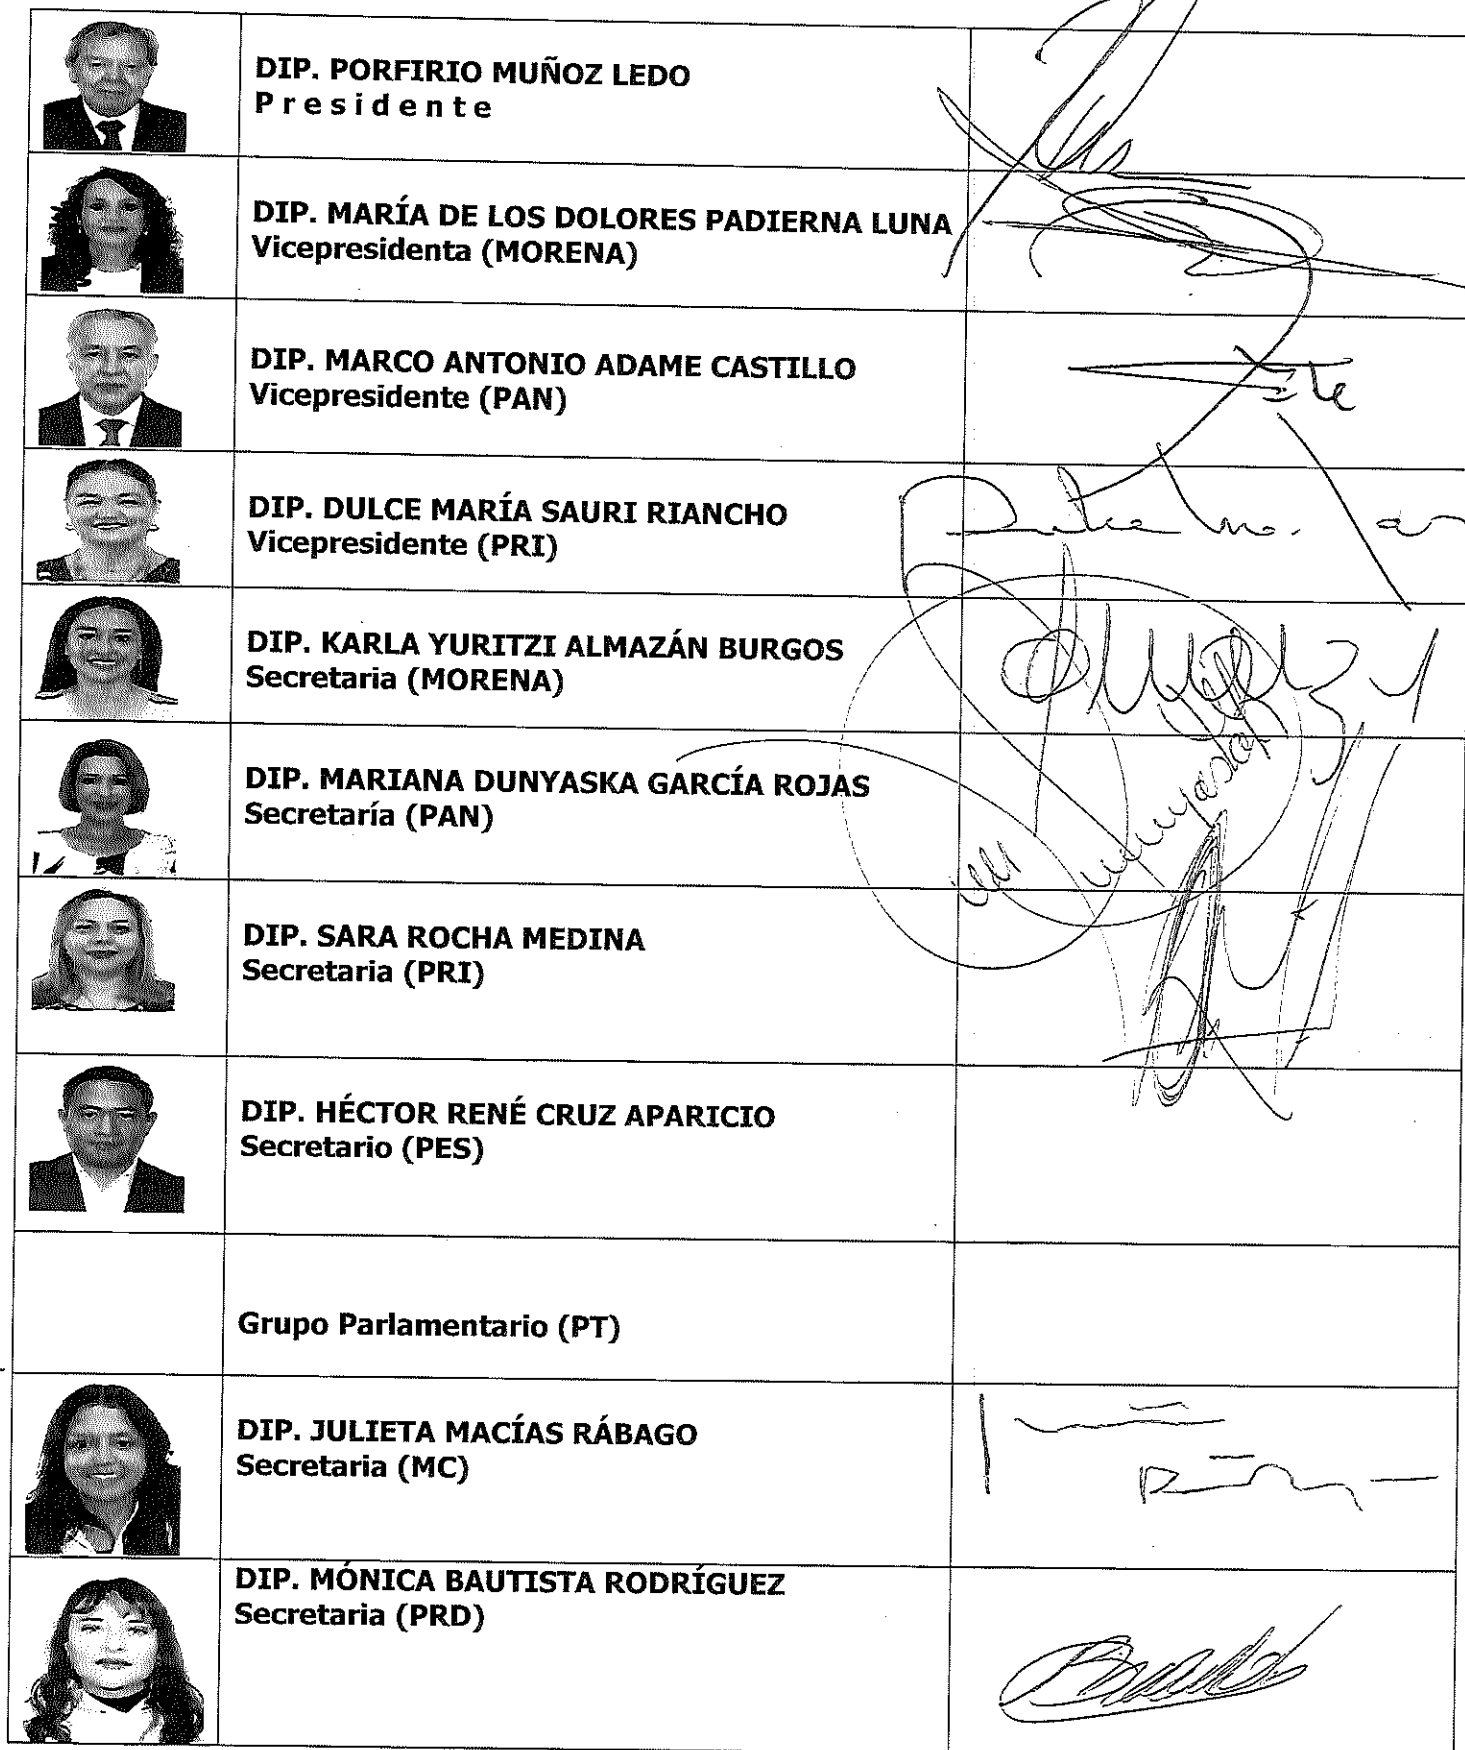 DIP. PORFIRIO MUÑOZ LEDO
Presidente
DIP. MARÍA DE LOS DOLORES PADIERNA LUNA
Vicepresidenta (MORENA)
DIP. MARCO ANTONIO ADAME CASTILLO
Vicepresidente (PAN)
DIP. DULCE MARÍA SAURI RIANCHO
Vicepresidente (PRI)
DIP. KARLA YURITZI ALMAZÁN BURGOS
Secretaria (MORENA)
DIP. MARIANA DUNYASKA GARCÍA ROJAS
Secretaría (PAN)
DIP. SARA ROCHA MEDINA
Secretaria (PRI)
DIP. HÉCTOR RENÉ CRUZ APARICIO
Secretario (PES)
Grupo Parlamentario (PT)
DIP. JULIETA MACÍAS RÁBAGO
Secretaria (MC)
DIP. MÓNICA BAUTISTA RODRÍGUEZ
Secretaria (PRD)